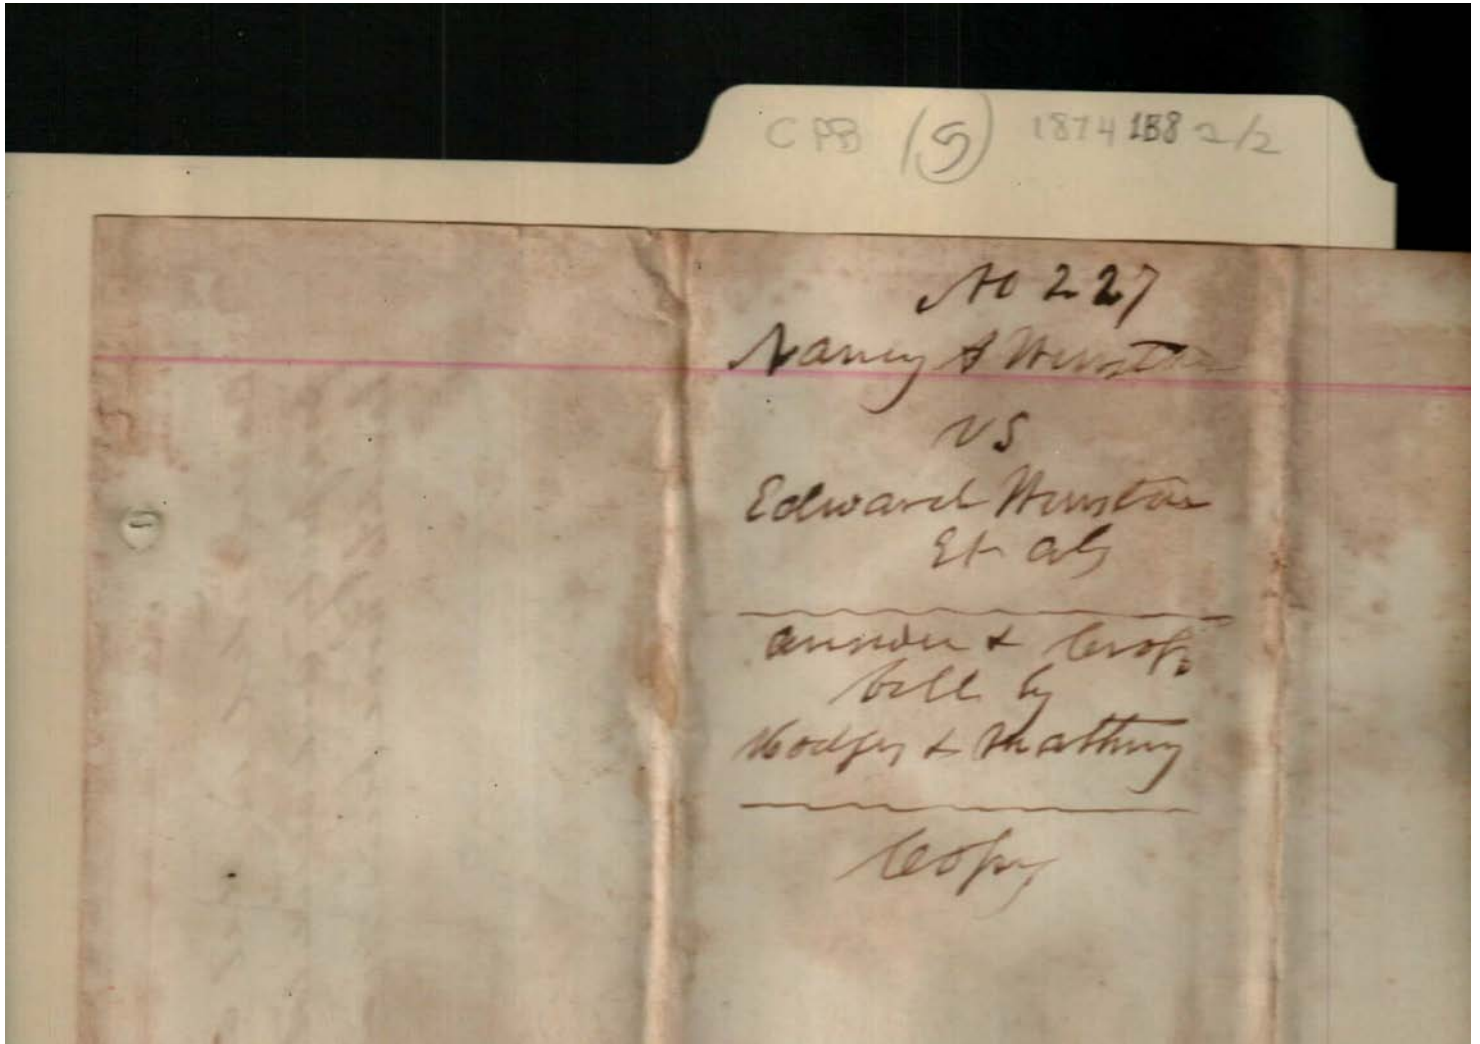 CPB (5) 1874 1B8 2/2
No 227
Nancy A Winston
vs
Edward Winston
Et als
answer & Cross
bill by
Hodges & Mathny
Copy